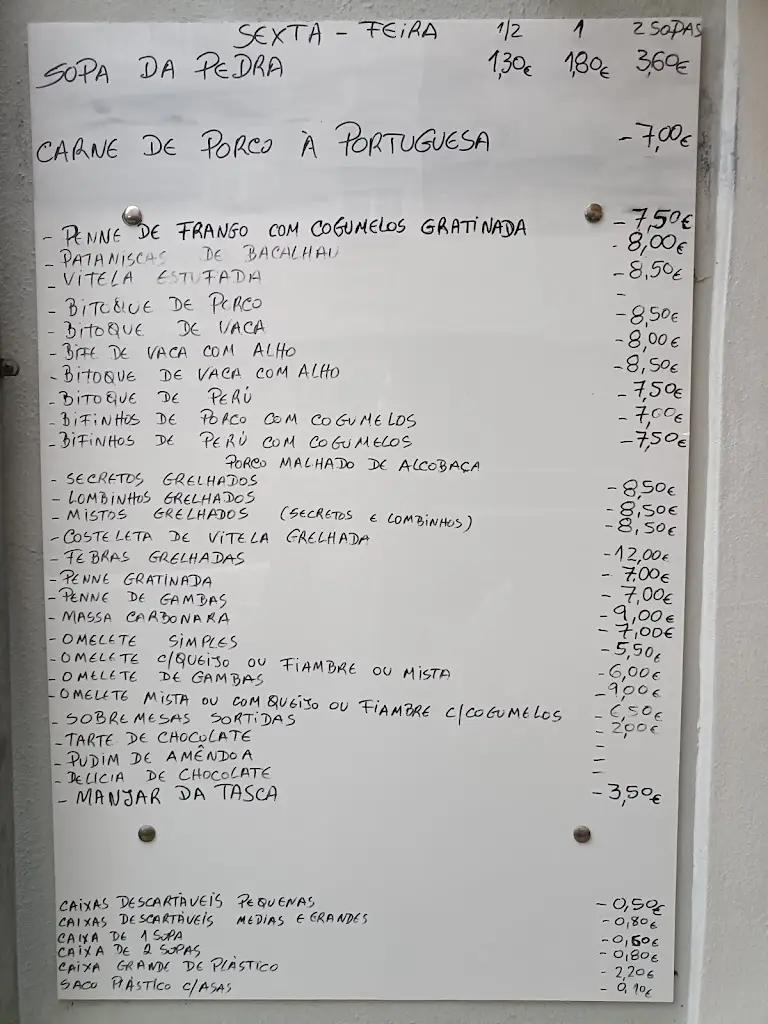 SEXTA - FEIRA 1/2 1 2 SOPAS
SOPA DA PEDRA 1,30€ 1,80€ 3,60€
CARNE DE PORCO À PORTUGUESA - 7,00€
- PENNE DE FRANGO COM COGUMELOS GRATINADA - 7,50€
- PATANISCAS DE BACALHAU - 8,00€
- VITELA ESTUFADA - 8,50€
- BITOQUE DE PORCO -
- BITOQUE DE VACA - 8,50€
- BIFE DE VACA COM ALHO - 8,00€
- BITOQUE DE VACA COM ALHO - 8,50€
- BITOQUE DE PERÚ - 7,50€
- BIFINHOS DE PORCO COM COGUMELOS - 7,00€
- BIFINHOS DE PERÚ COM COGUMELOS - 7,50€
PORCO MALHADO DE ALCOBAÇA
- SECRETOS GRELHADOS - 8,50€
- LOMBINHOS GRELHADOS - 8,50€
- MISTOS GRELHADOS (SECRETOS E LOMBINHOS) - 8,50€
- COSTELETA DE VITELA GRELHADA - 12,00€
- FEBRAS GRELHADAS - 7,00€
- PENNE GRATINADA - 7,00€
- PENNE DE GAMBAS - 9,00€
- MASSA CARBONARA - 7,00€
- OMELETE SIMPLES - 5,50€
- OMELETE C/QUEIJO OU FIAMBRE OU MISTA - 6,00€
- OMELETE DE GAMBAS - 9,00€
- OMELETE MISTA OU COM QUEIJO OU FIAMBRE C/COGUMELOS - 6,50€
- SOBREMESAS SORTIDAS - 2,00€
- TARTE DE CHOCOLATE -
- PUDIM DE AMÊNDOA -
- DELICIA DE CHOCOLATE -
- MANJAR DA TASCA - 3,50€
CAIXAS DESCARTÁVEIS PEQUENAS - 0,50€
CAIXAS DESCARTÁVEIS MEDIAS E GRANDES - 0,80€
CAIXA DE 1 SOPA - 0,60€
CAIXA DE 2 SOPAS - 0,80€
CAIXA GRANDE DE PLÁSTICO - 2,20€
SACO PLÁSTICO C/ASAS - 0,10€